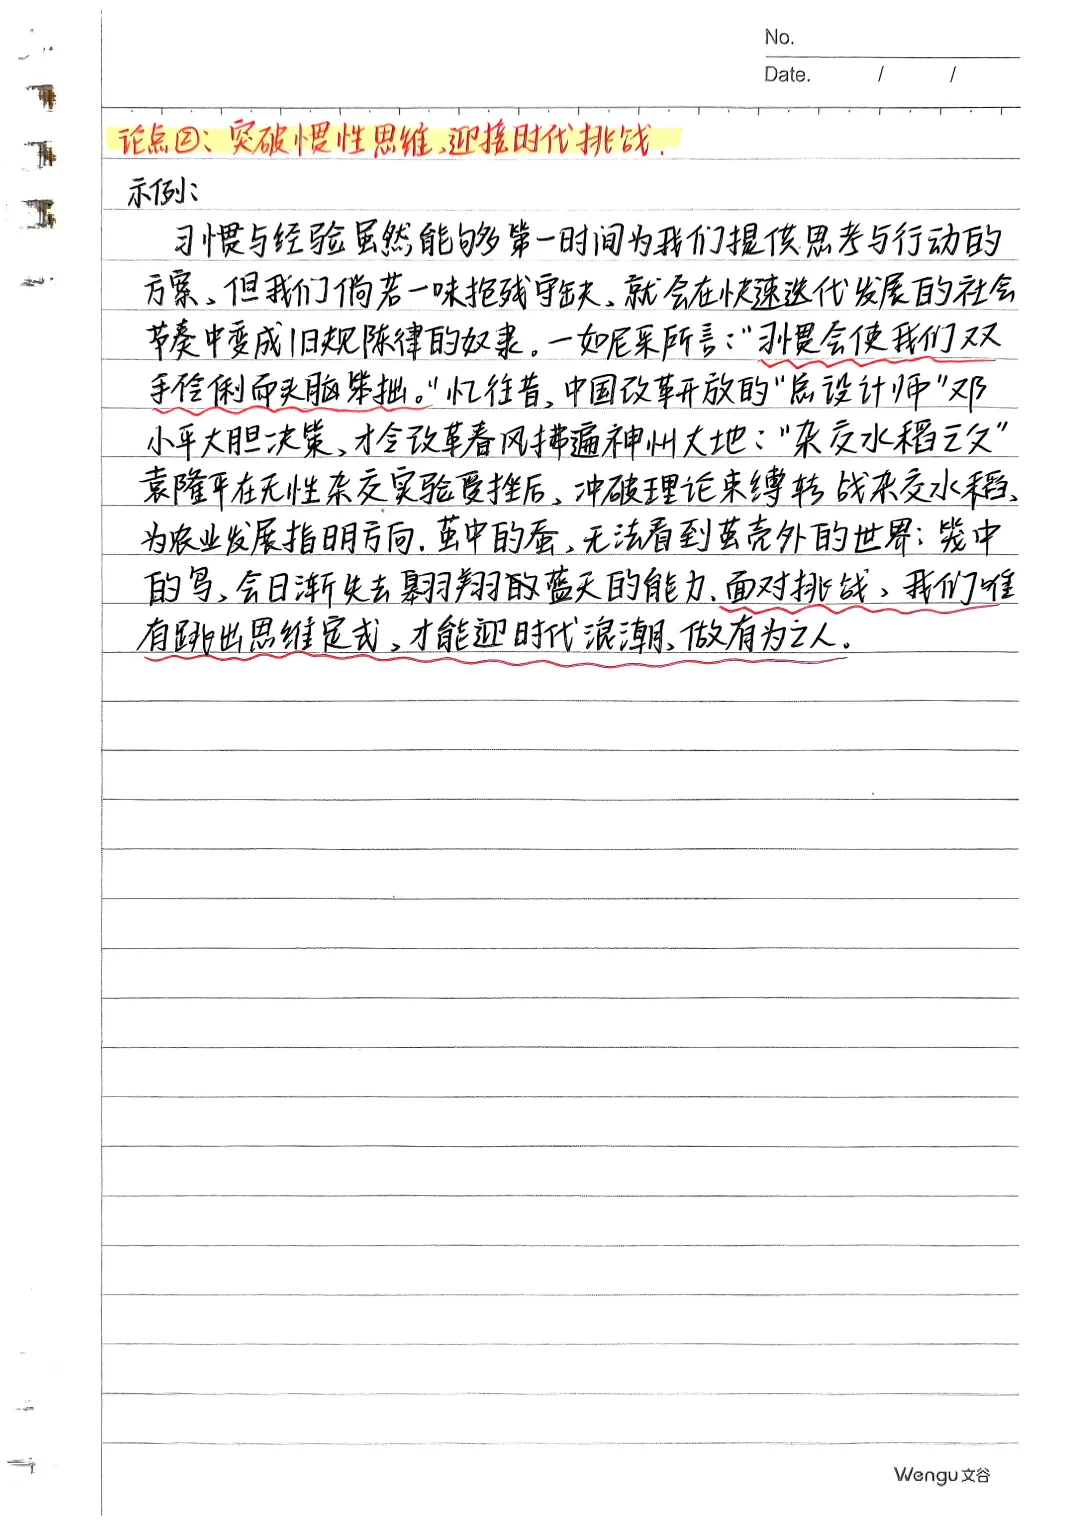 No.
Date. / /
论点②:突破惯性思维,迎接时代挑战.
示例:
习惯与经验虽然能够第一时间为我们提供思考与行动的
方案,但我们倘若一味抱残守缺,就会在快速迭代发展的社会
节奏中变成旧规陈律的奴隶。一如尼采所言:“习惯会使我们双
手伶俐而头脑笨拙。”忆往昔,中国改革开放的“总设计师”邓
小平大胆决策,才令改革春风拂遍神州大地;“杂交水稻之父”
袁隆平在无性杂交实验受挫后,冲破理论束缚转战杂交水稻,
为农业发展指明方向.茧中的蚕,无法看到茧壳外的世界;笼中
的鸟,会日渐失去翱翔蓝天的能力.面对挑战,我们唯
有跳出思维定式,才能迎时代浪潮,做有为之人。
Wengu 文谷